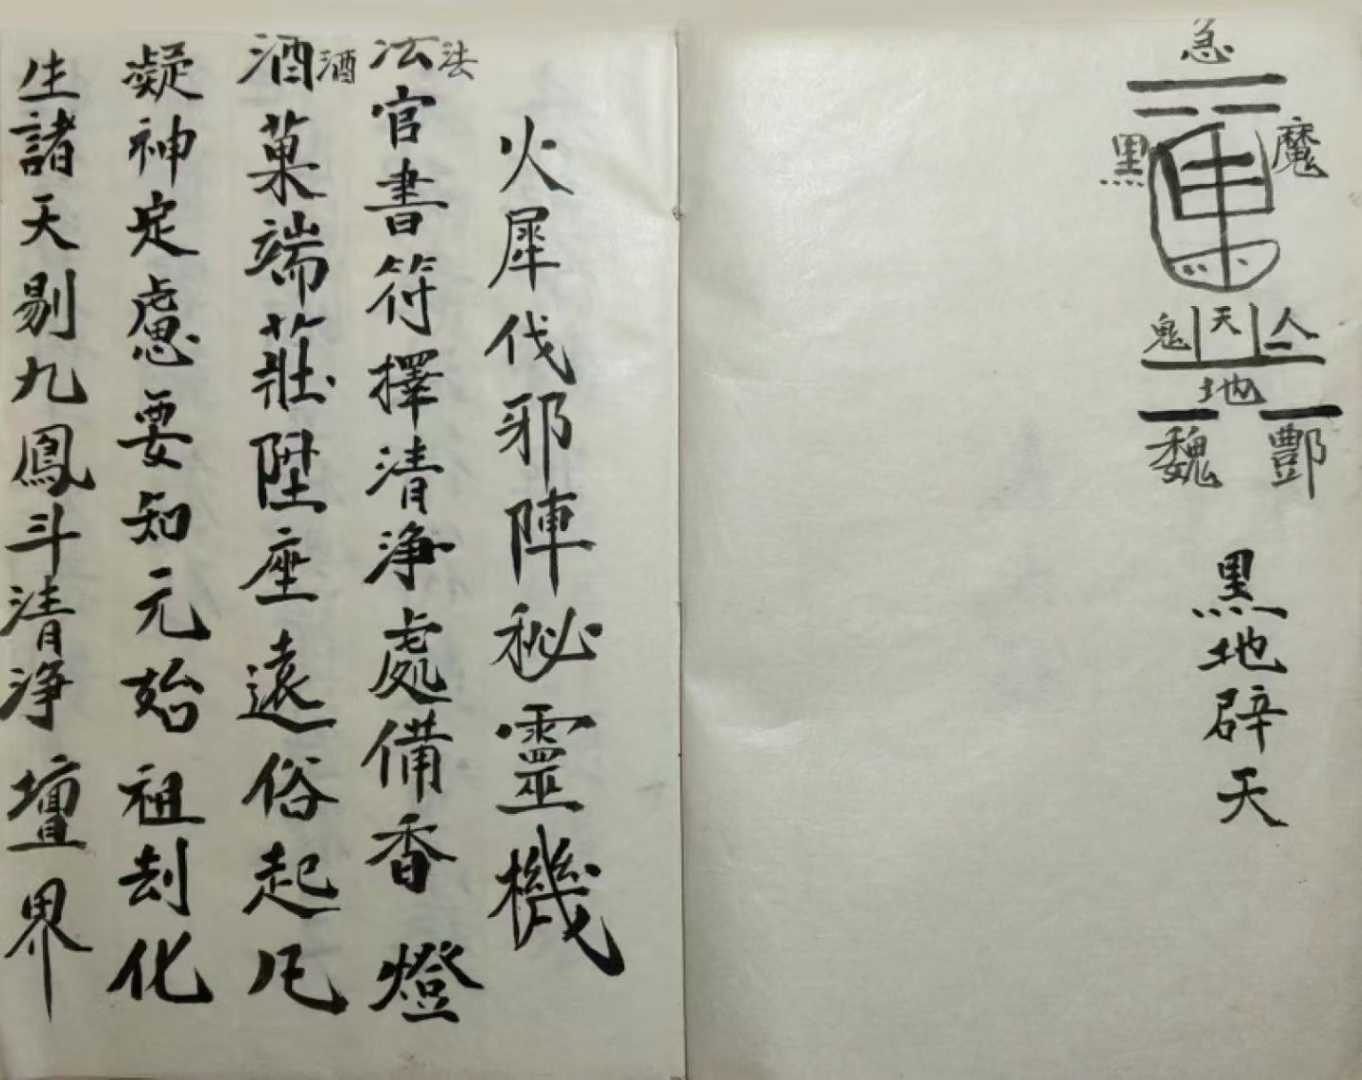 急
黑 魔
鬼 天 人
地
魏 酆
黑地辟天
火犀伐邪陣秘靈機
法法官書符擇清淨處備香燈
酒酒菓端莊陞座遠俗起凡
凝神定慮要知元始祖刦化
生諸天剔九鳳斗清淨壇界